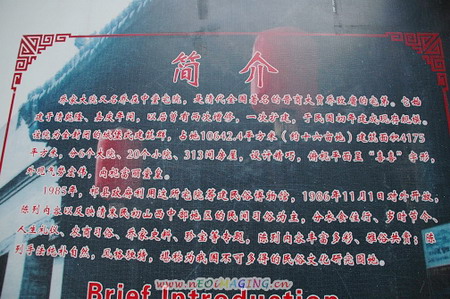 简介
乔家大院又名乔在中堂宅院，是清代全国著名的晋商大贾乔致庸的宅第。它始
建于清乾隆、嘉庆年间，以后曾有两次增修，一次扩建，于民国初年建成现存规模。
该院为全封闭的城堡式建筑群，占地10642.4平方米（约十六古地）建筑面积4175
平方米，分6个大院、20个小院、313间房屋，设计精巧，俯视平面呈“喜喜”字形，
外观气势宏伟，内视富丽堂皇。
1985年，祁县政府利用这所宅院筹建民俗博物馆，1986年11月1日对外开放，
陈列内容以反映清末民初山西中部地区的民间习俗为主，分衣食住行、岁时节令、
人生礼仪、农商习俗、乔家史料、珍宝等专题，陈列内容丰富多彩、雅俗共赏；陈
列手法纯朴自然，风格独特，堪称为我国不可多得的民俗文化研究园地。
Brief Introduction
www.NEOCMAGING.cn